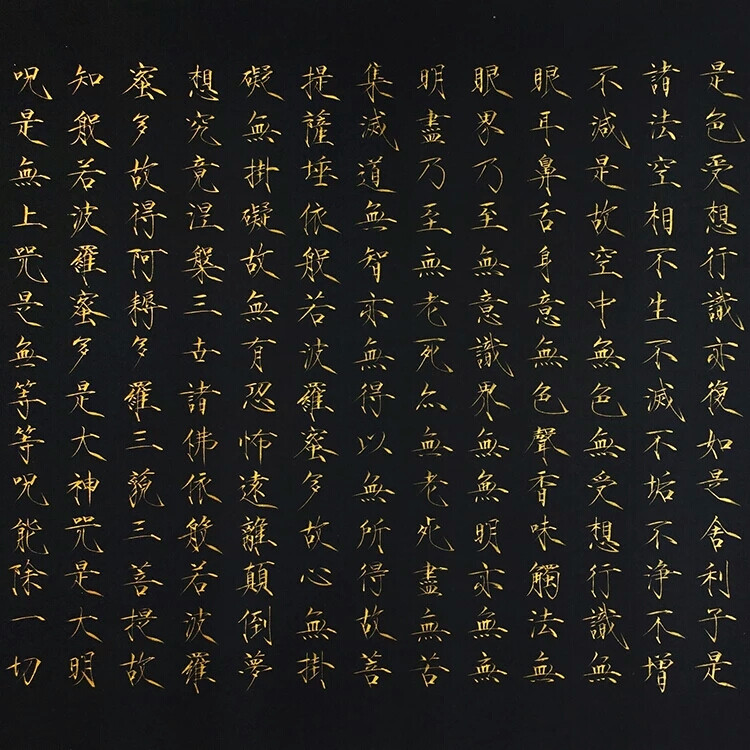 是色受想行識亦復如是舍利子是
諸法空相不生不滅不垢不净不增
不減是故空中無色無受想行識無
眼耳鼻舌身意無色聲香味觸法無
眼界乃至無意識界無無明亦無無
明盡乃至無老死亦無老死盡無苦
集滅道無智亦無得以無所得故菩
提薩埵依般若波羅蜜多故心無掛
礙無掛礙故無有恐怖遠離顛倒夢
想究竟涅槃三世諸佛依般若波羅
蜜多故得阿耨多羅三藐三菩提故
知般若波羅蜜多是大神咒是大明
呪是無上咒是無等等呪能除一切